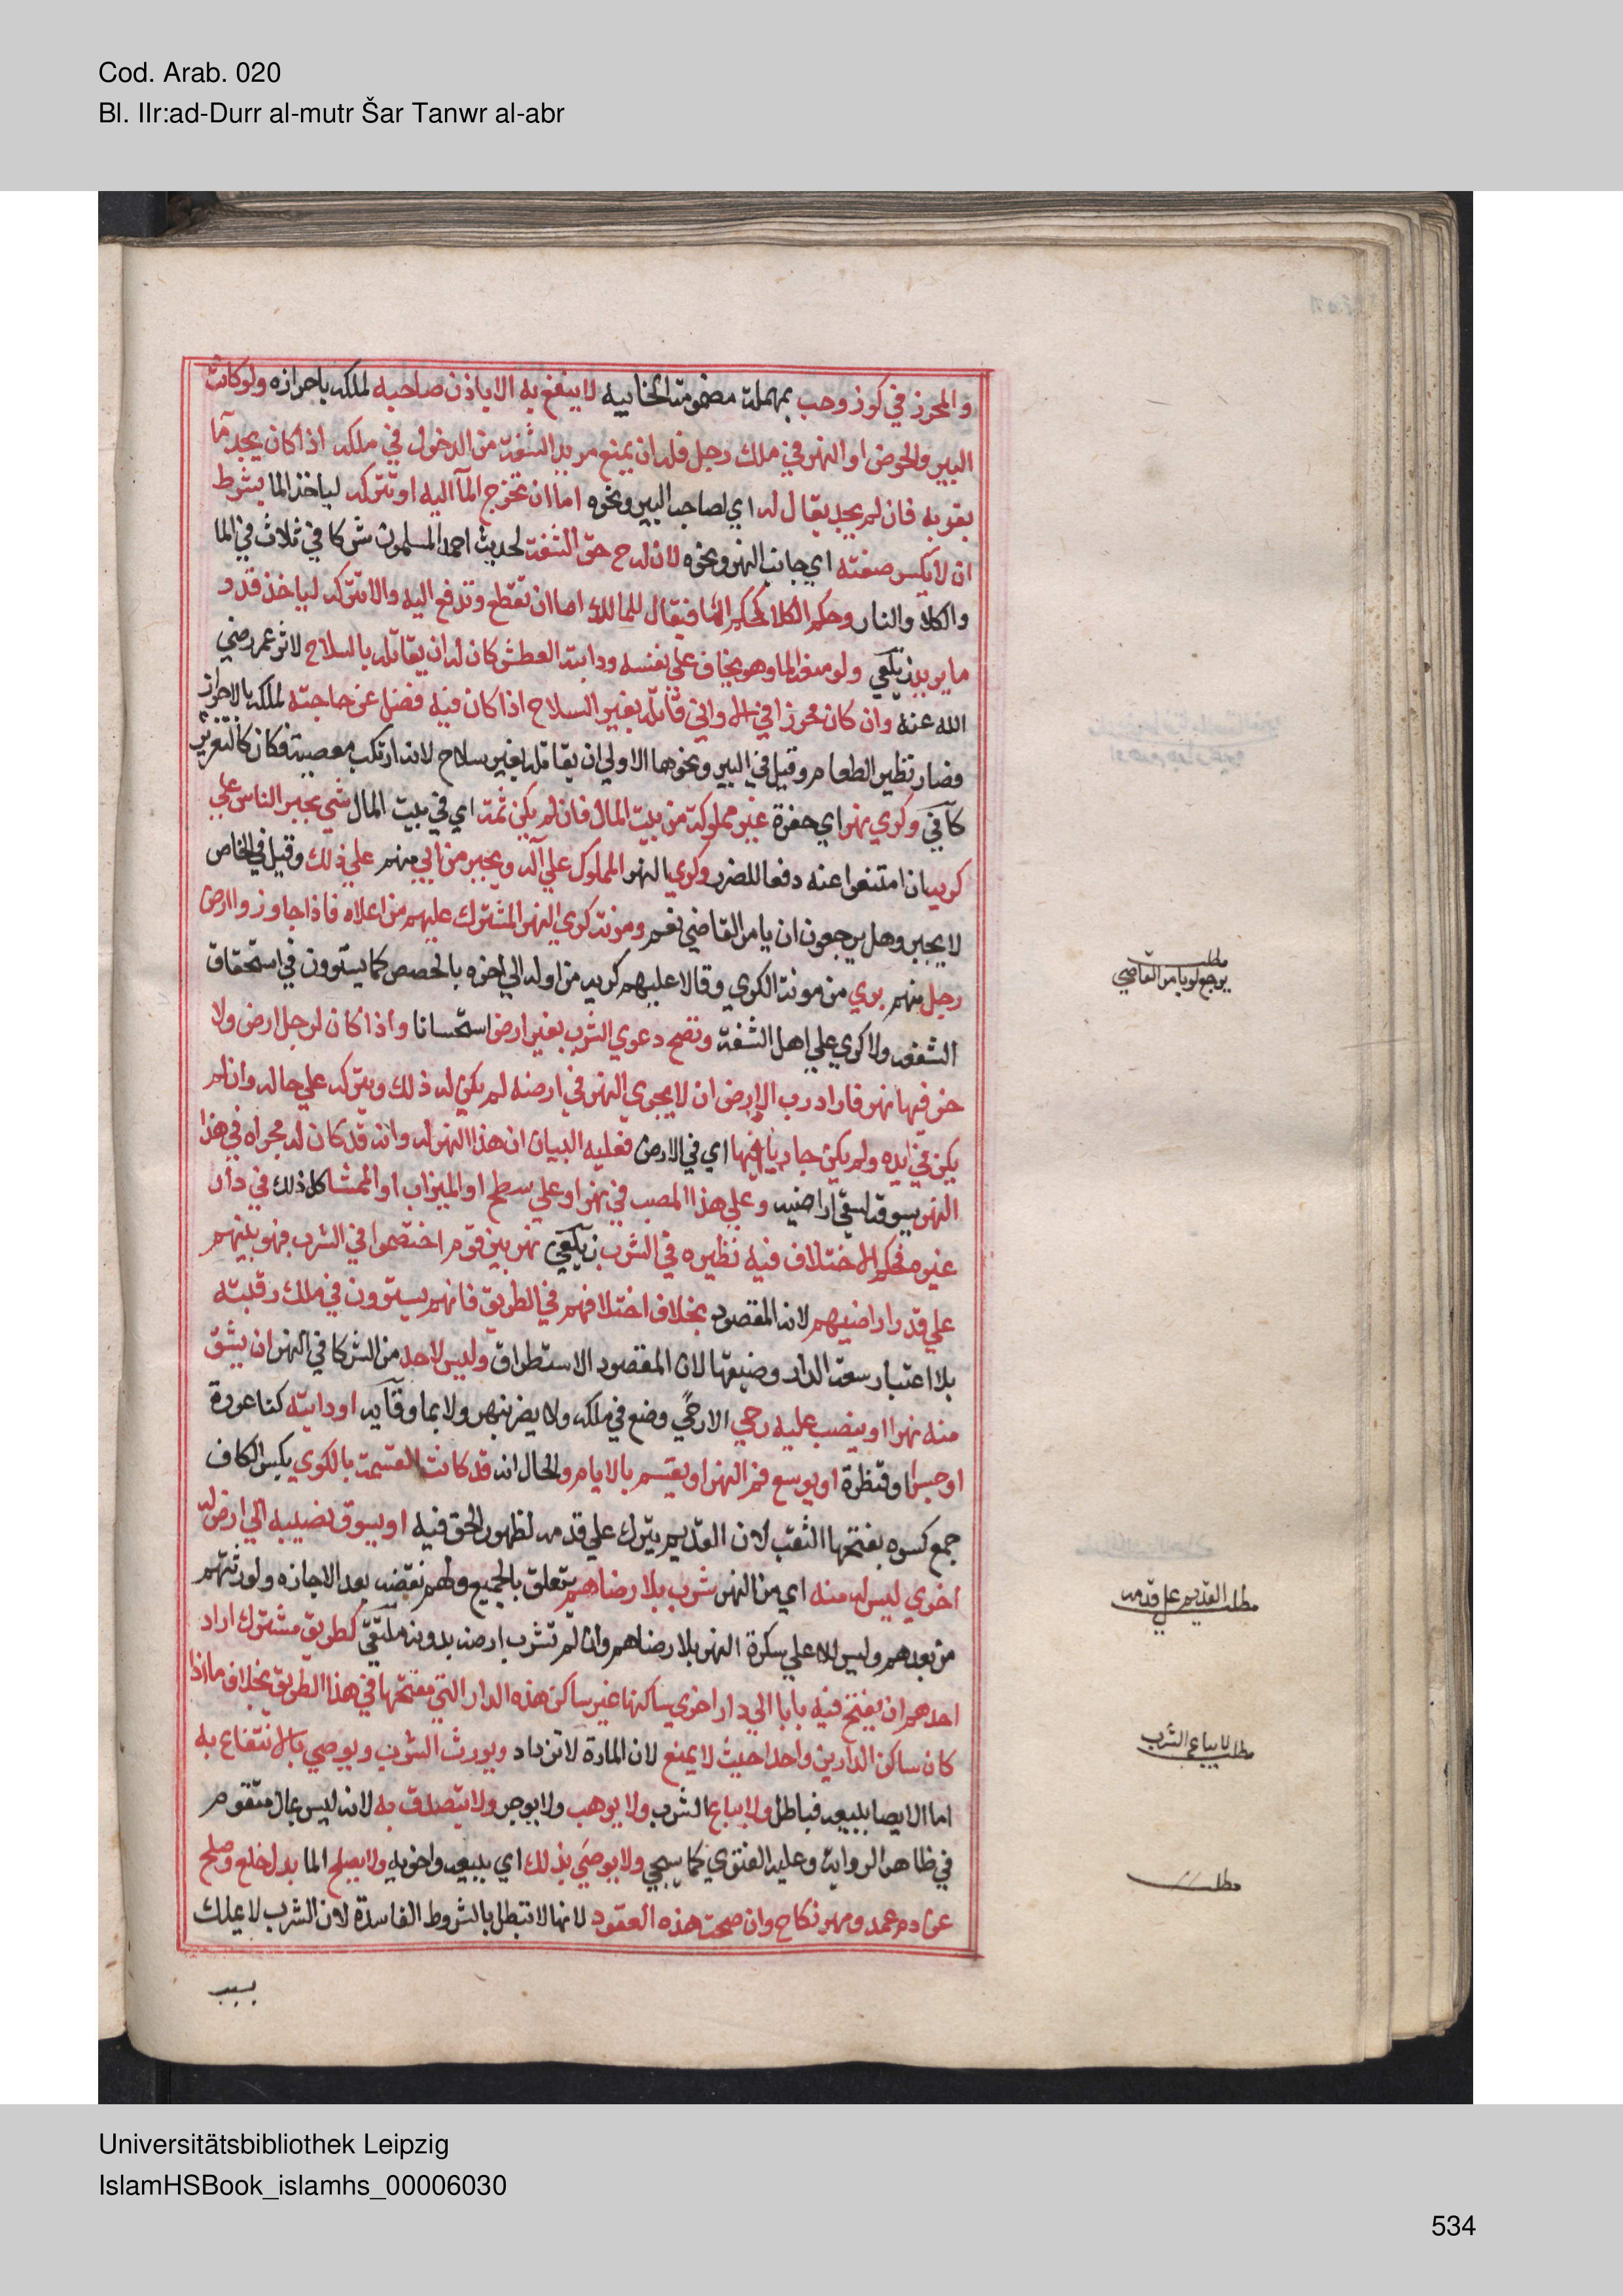 Cod. Arab. 020
Bl. IIr:ad-Durr al-mutr Šar Tanwr al-abr
والمحرز في كوز وحب بمهملة مضمومة الخابيه لا ينتفع به الا باذن صاحبه لملكه باحرازه ولو كانت
البير والحوض او النهر في ملك رجل فله ان يمنع مريد الشفة من الدخول في ملكه اذا كان يجد ما
بقربه فان لم يجد يقال له اي لصاحب البير ونحوه اما ان تخرج المآ اليه او تتركه لياخذ الما بشرط
ان لا يكسر ضفته اي جانب النهر ونحوه لان له ح حق الشفة لحديث احمد المسلمون شركا في ثلاث في الما
والكلا والنار وحكم الكلا كحكم الما فيقال للمالك اما ان تقطع وتدفع اليه والا تتركه لياخذ قدر
ما يريد زيلعي ولو منعه الما وهو يخاف على نفسه ودابته العطش كان له ان يقاتله بالسلاح لاثر عمر رضي
الله عنه وان كان محرزا في الاواني قاتله بغير السلاح اذا كان فيه فضل عن حاجته لملكه بالاحراز
فصار نظير الطعام وقيل في البير ونحوها الاولي ان يقاتله بغير سلاح لانه ارتكب معصية فكان كالتعزير
كافي وكري نهر اي حفرة غير مملوكة من بيت المال فان لم يكن ثمة اي في بيت المال شي يجبر الناس علي
كريه ان امتنعوا عنه دفعا للضرر وكري النهر المملوك علي اهله ويجبر من ابي منهم علي ذلك وقيل في الخاص
لا يجبر وهل يرجعون ان يامر القاضي نعم ومونة كري النهر المشترك عليهم من اعلاه فاذا جاوزوا ارض
رجل منهم بري من مونة الكري وقالا عليهم كريه من اوله الي اخره بالحصص كما يستوون في استحقاق
الشفعه ولا كري علي اهل الشفة وتصح دعوي الشرب بغير ارض استحسانا واذا كان لرجل ارض ولا
خر فيها نهر فاراد رب الارض ان لا يجري النهر في ارضه لم يكن له ذلك ويتركه علي حاله وان لم
يكن في يده ولم يكن جاريا فيها اي في الارض فعليه البيان ان هذا النهر له وانه قد كان له مجراه في هذا
النهر يسوقه لسقي اراضيه وعلي هذا المصب في نهر او علي سطح او الميزاب او الممشا كل ذلك في دار
غيره فحكم الاختلاف فيه نظيره في الشرب زيلعي نهر بين قوم اختصموا في الشرب فهو بينهم
علي قدر اراضيهم لانه المقصود بخلاف اختلافهم في الطريق فانهم يستوون في ملك رقبته
بلا اعتبار سعة الدار وضيقها لان المقصود الاستطراق وليس لاحد من الشركا في النهر ان يشق
منه نهرا او ينصب عليه رحي الا رحي وضع في ملكه ولا يضر بنهر ولا بما وقايه او دابته كناعورة
او جسرا وقنطرة او يوسع فم النهر او يقسم بالايام والحال انه قد كانت القسمة بالكوي بكسر الكاف
جمع كوه بفتحها الثقب لان القديم يترك علي قدمه لظهور الحق فيه او يسوق نصيبه الي ارض له
اخري ليس له منه اي من النهر شرب بلا رضاهم يتعلق بالجميع ولهم نقضه بعد الاجازه ولورثتهم
من بعدهم وليس للاعلي سكرة النهر بلا رضاهم وان لم تشرب ارضه بدونه ملتقي كطريق مشترك اراد
احدهم ان يفتح فيه بابا الي دار اخري ساكنها غير ساكن هذه الدار التي مفتحها في هذا الطريق بخلاف ما اذا
كان ساكن الدارين واحدا حيث لا يمنع لان المارة لا تزداد ويورث الشرب ويوصي بالانتفاع به
اما الايصا ببيعه فباطل ولا يباع الشرب ولا يوهب ولا يوجر ولا يتصدق به لانه ليس بمال متقوم
في ظاهر الرواية وعليه الفتوي كما سيجي ولا يوصي بذلك اي ببيعه واخويه ولا يصلح الما بدل خلع وصلح
عن دم عمد ومهر نكاح وان صحت هذه العقود لانها لا تبطل بالشروط الفاسدة لان الشرب لا يملك
بسبب
مطلب
يرجع لو بامر القاضي
مطلب القديم علي قدمه
مطلب لا يباع الشرب
مطلب
Universitätsbibliothek Leipzig
IslamHSBook_islamhs_00006030
534